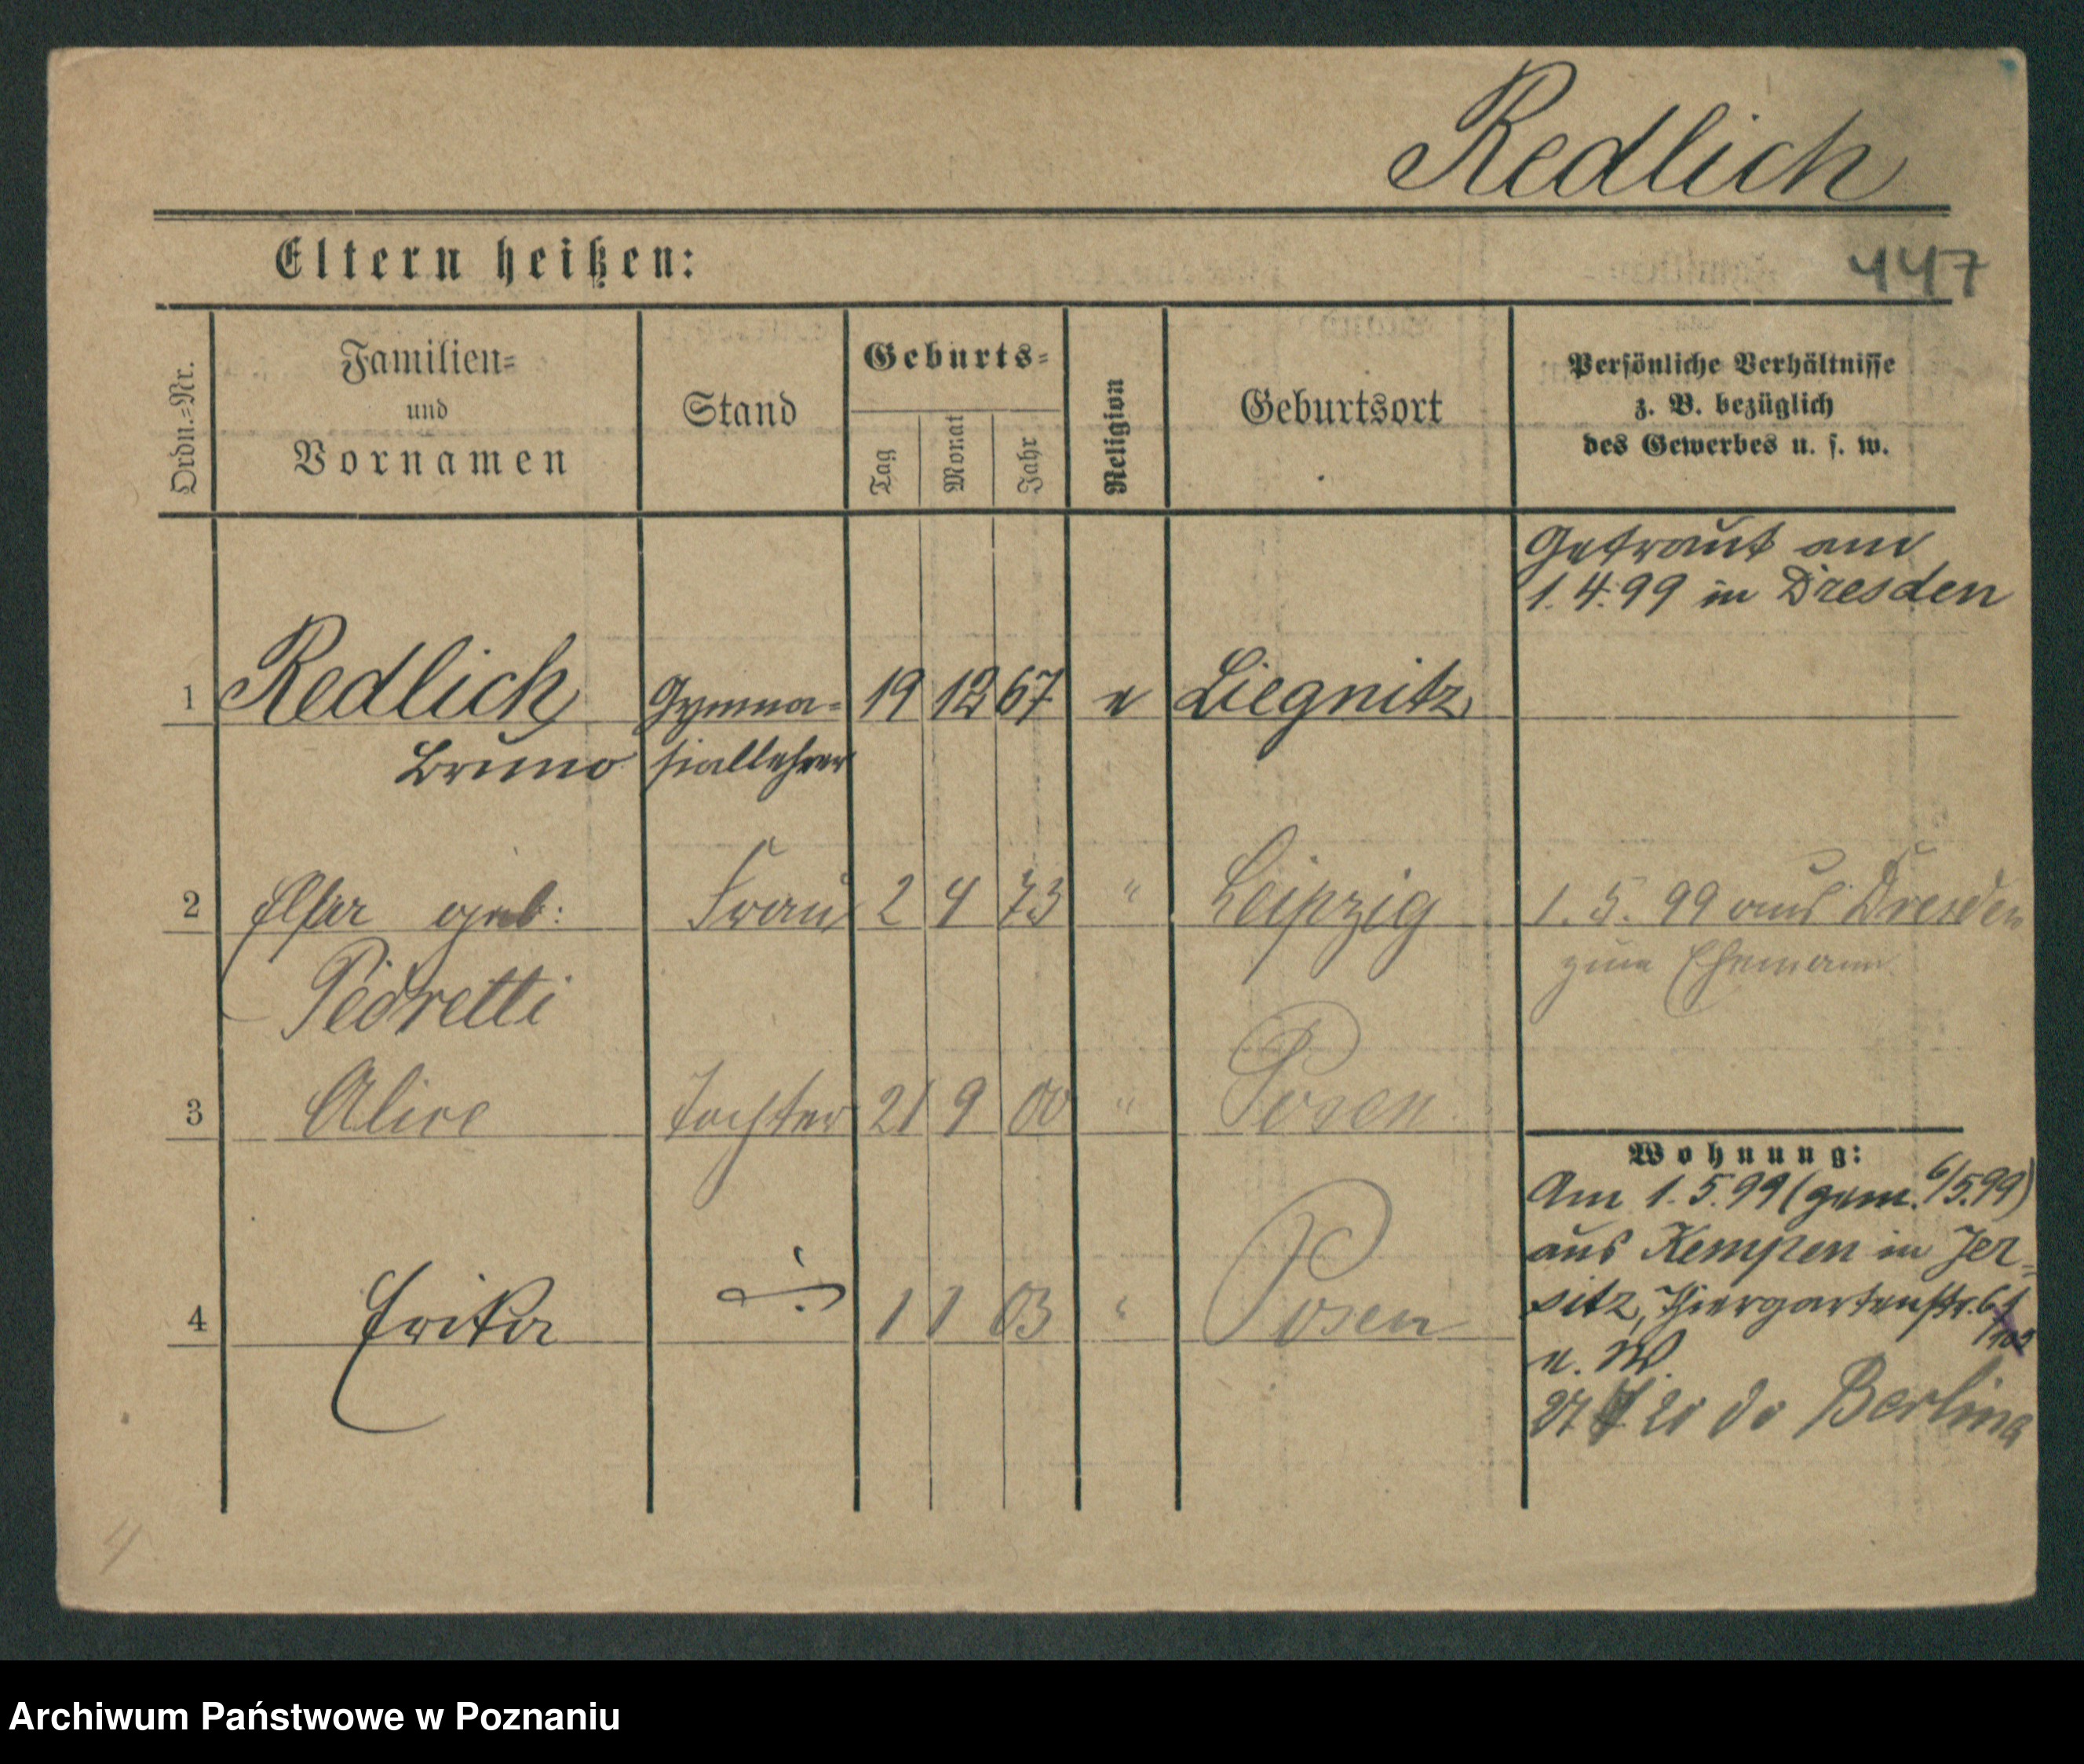 Redlich
Eltern heißen:
447
Ordn.=Nr.
Familien=
und
Vornamen
Stand
Geburts=
Tag
Monat
Jahr
Religion
Geburtsort
Persönliche Verhältnisse
z. B. bezüglich
des Gewerbes u. s. w.
Getraut am
1. 4. 99 in Dresden
1 Redlich Gymna= 19 12 67 e Liegnitz
Bruno siallehrer
2 Elsa geb: Frau 2 4 73 " Leipzig 1. 5. 99 aus Dresden
zum Ehemann
Pedretti
3 Alice Tochter 21 9 00 " Posen
Wohnung:
Am 1. 5. 99 (gem. 6/5.99)
aus Kempen in Jer=
sitz, Thiergartenstr. 61
4 Erika 1 1 03 " Posen
u. W.
27 20 do Berlin
4
Archiwum Państwowe w Poznaniu